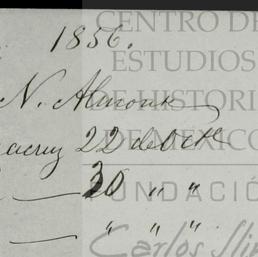 1856.
CENTRO DE
ESTUDIOS
DE HISTORIA
DE MÉXICO
FUNDACIÓN
Carlos Slim
N. Almonte
acruz 22 de Oct
30 " "
" " "